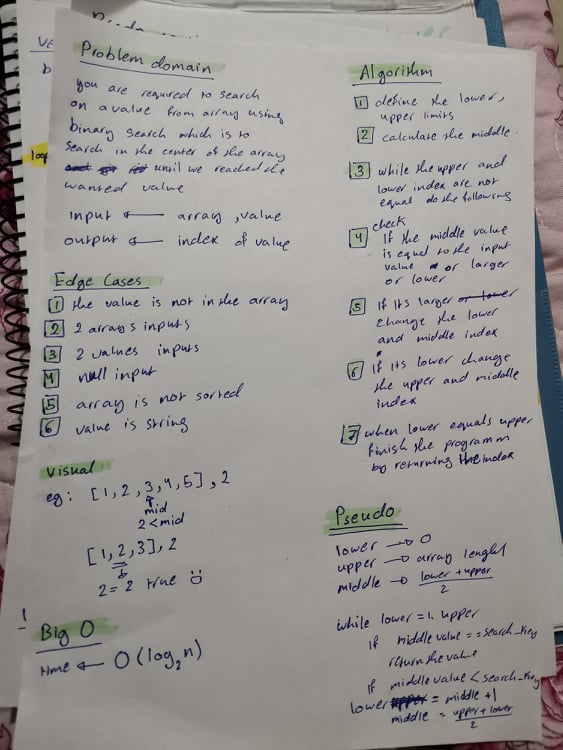 Problem domain
you are required to search
on a value from array using
binary search which is to
search in the center of the array
until we reached the
wanted value
input ← array, value
output ← index of value
Edge Cases
1 the value is not in the array
2 2 arrays inputs
3 2 values inputs
4 null input
5 array is not sorted
6 value is string
Visual
eg: [1, 2, 3, 4, 5], 2
mid
2 < mid
[1, 2, 3], 2
2 = 2 true
Big O
time ← O(log₂n)
Algorithm
1 define the lower,
upper limits
2 calculate the middle.
3 while the upper and
lower index are not
equal do the following
4 check
If the middle value
is equal to the input
value or larger
or lower
5 if its larger or lower
change the lower
and middle index
6 if its lower change
the upper and middle
index
7 when lower equals upper
finish the programm
by returning the index
Pseudo
lower → 0
upper → array lenght
middle → lower + upper
2
while lower =! upper
If middle value == search_key
return the value
If middle value < search_key
lower upper = middle + 1
middle = upper + lower
2
loop